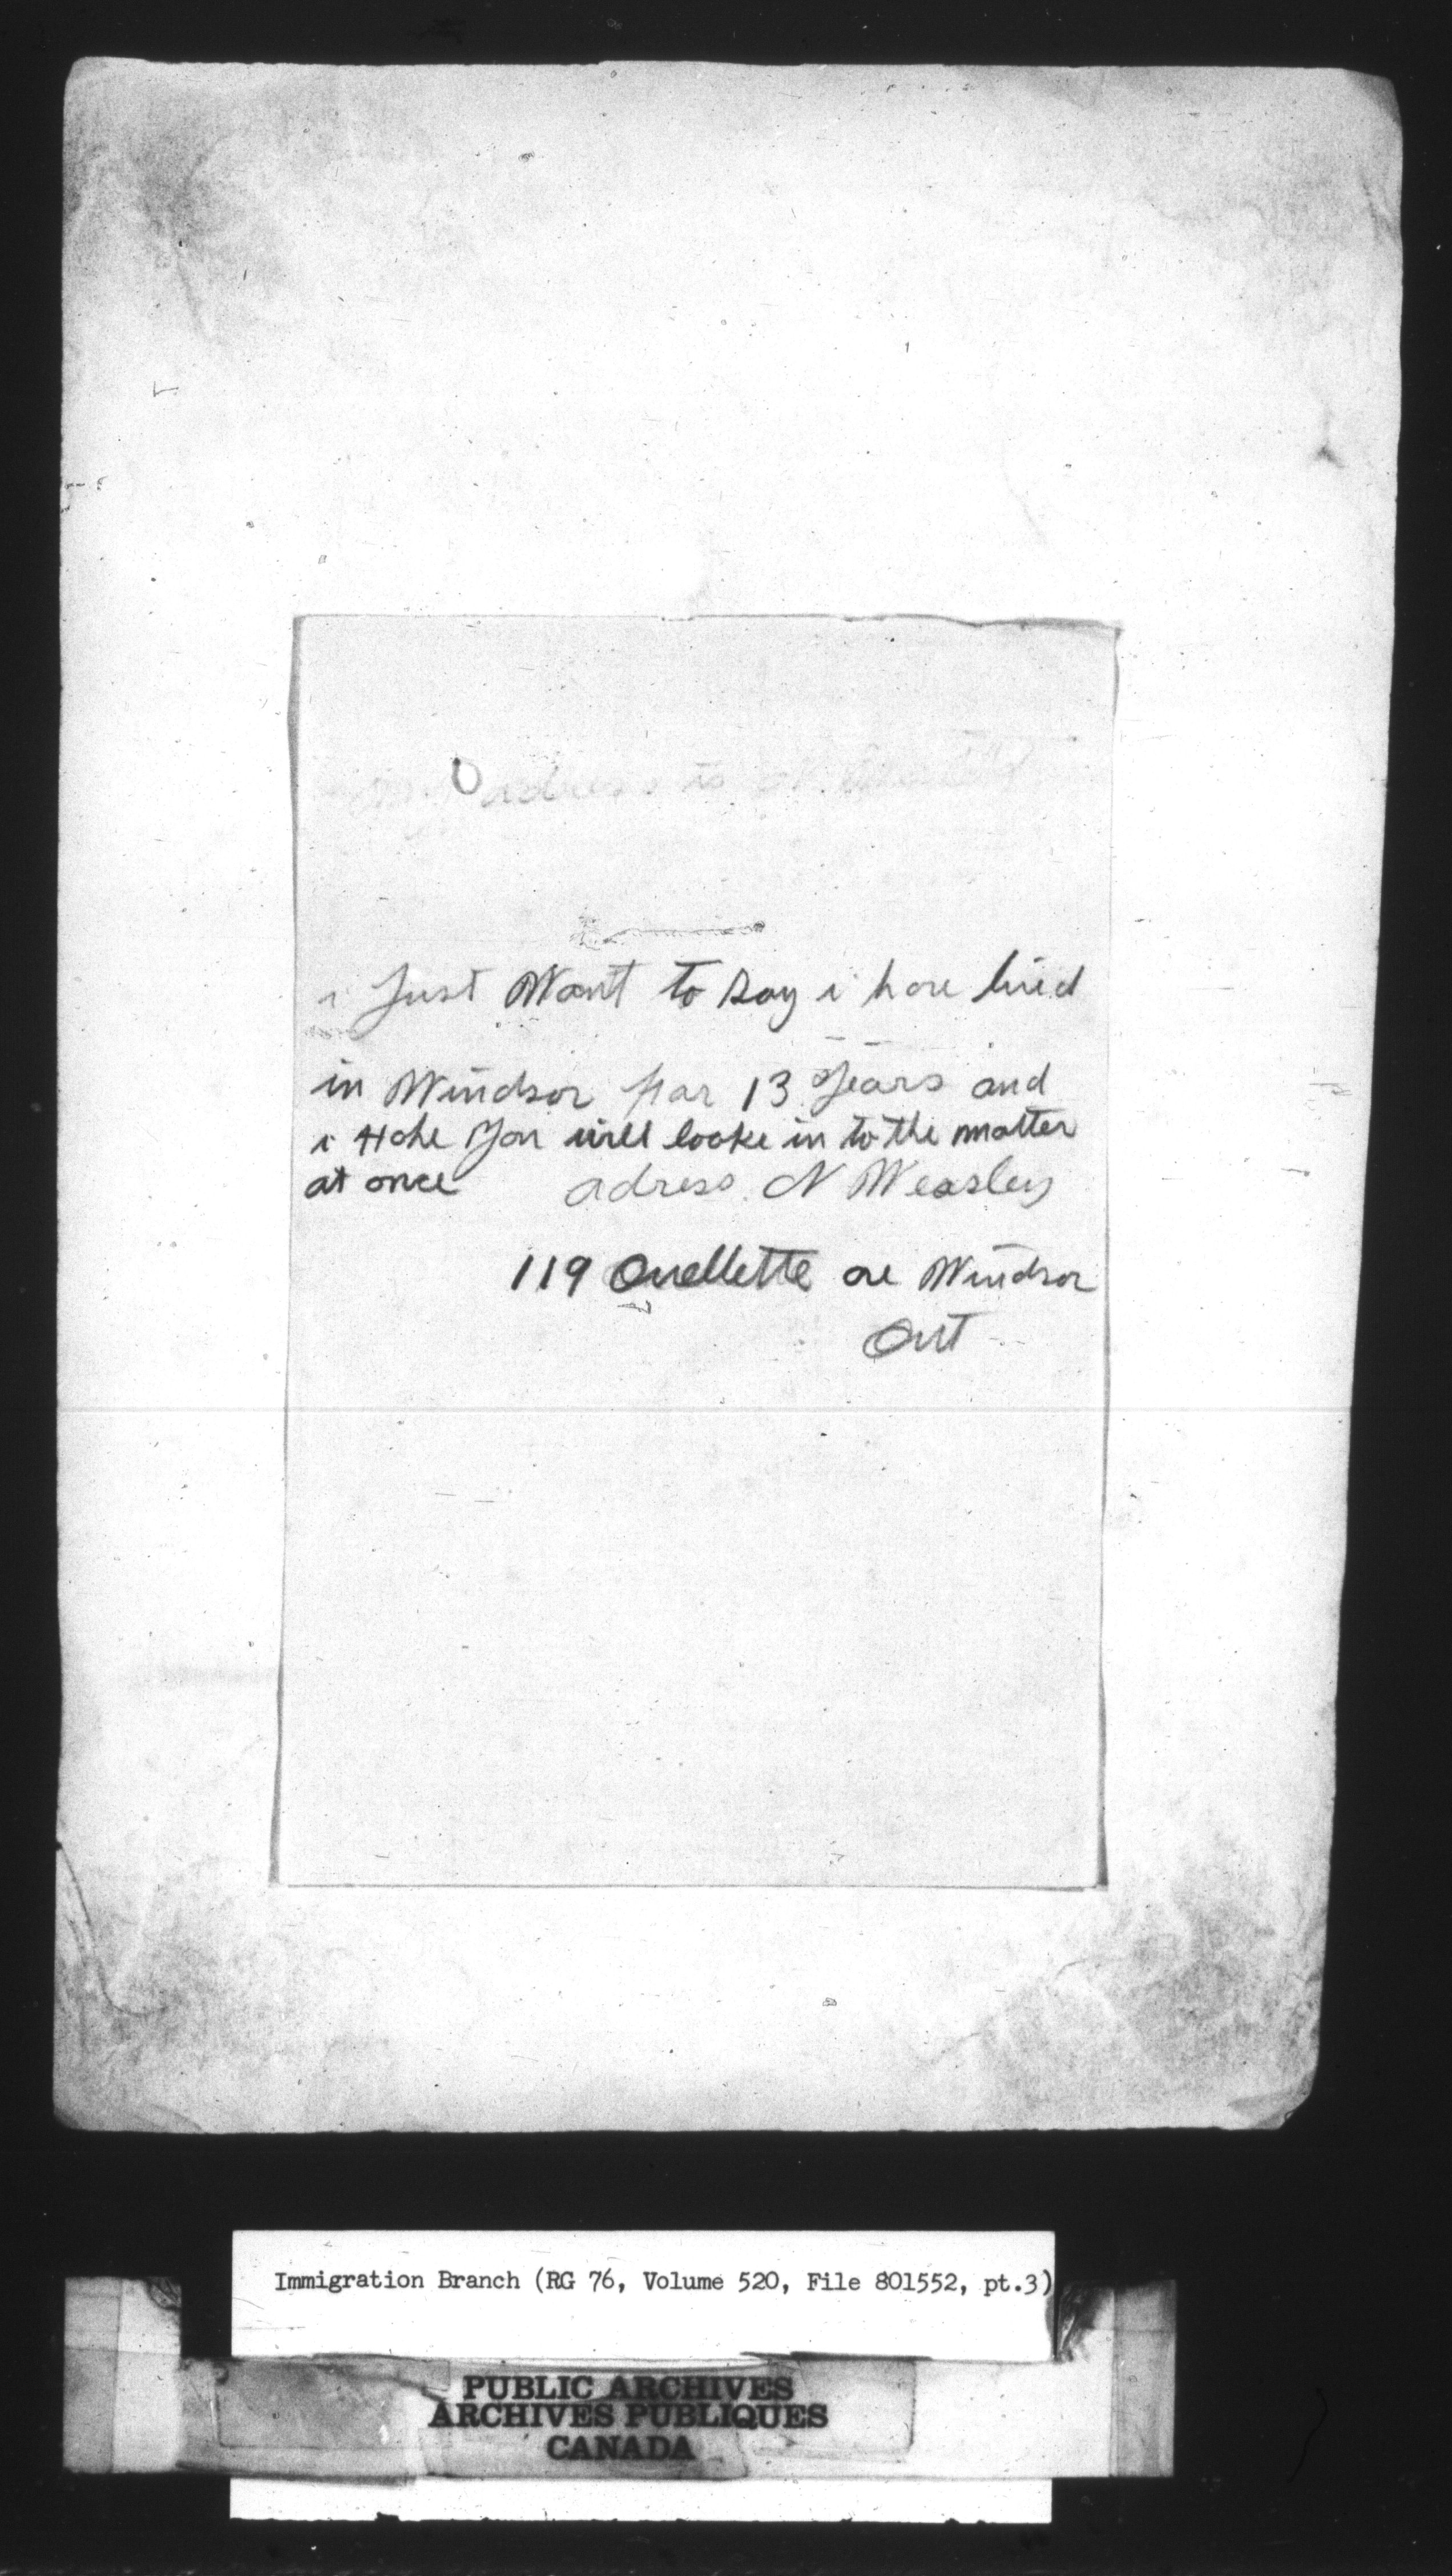 adress is N
i Just Want to say i have lived
in Windsor for 13 years and
i Hope you will looke in to the matter
at once adress. N Weasley
119 Ouellette ave Windsor
Ont
Immigration Branch (RG 76, Volume 520, File 801552, pt.3)
PUBLIC ARCHIVES
ARCHIVES PUBLIQUES
CANADA